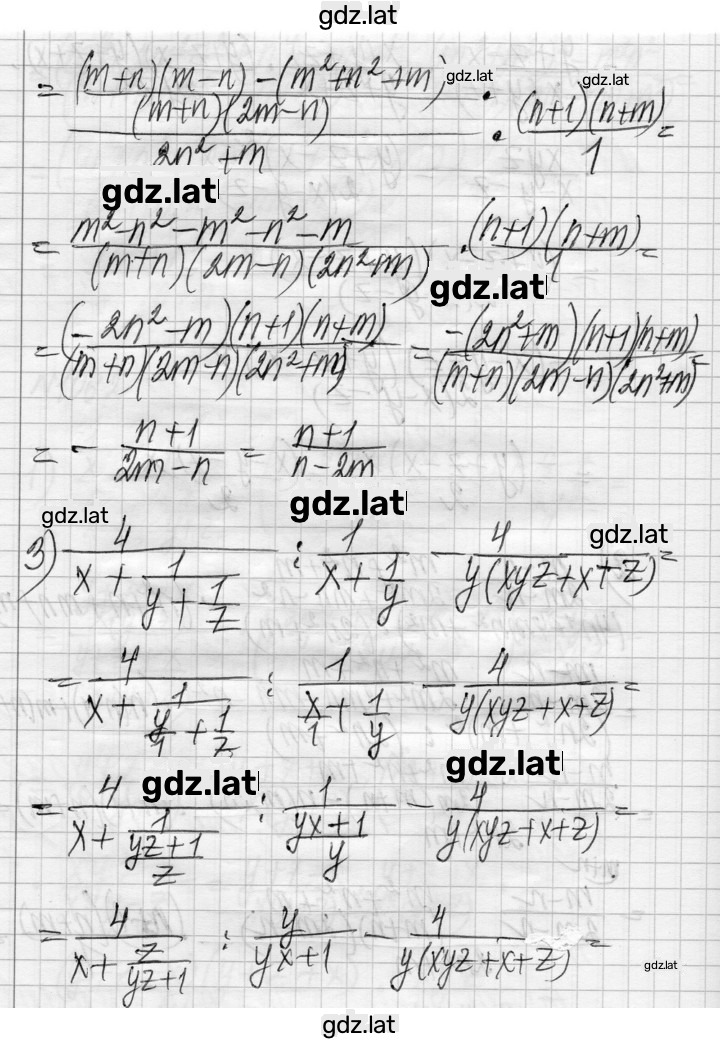 gdz.lat
= ((m+n)(m-n)-(m²+n²+m))/((m+n)(2m-n)) / (2n²+m) : ((n+1)(n+m))/1 =
gdz.lat gdz.lat
gdz.lat
= (m²-n²-m²-n²-m)/((m+n)(2m-n)(2n²+m)) · ((n+1)(n+m))/1 =
gdz.lat
= ((-2n²-m)(n+1)(n+m))/((m+n)(2m-n)(2n²+m)) = (-(2n²+m)(n+1)(n+m))/((m+n)(2m-n)(2n²+m)) =
= - (n+1)/(2m-n) = (n+1)/(n-2m)
gdz.lat
gdz.lat
gdz.lat
3) 4/(x + 1/(y + 1/z)) : 1/(x + 1/y) - 4/(y(xyz+x+z)) =
= 4/(x + 1/(y/1 + 1/z)) : 1/(x/1 + 1/y) - 4/(y(xyz+x+z)) =
gdz.lat
gdz.lat
= 4/(x + 1/((yz+1)/z)) : 1/((yx+1)/y) - 4/(y(xyz+x+z)) =
= 4/(x + z/(yz+1)) : y/(yx+1) - 4/(y(xyz+x+z)) =
gdz.lat
gdz.lat